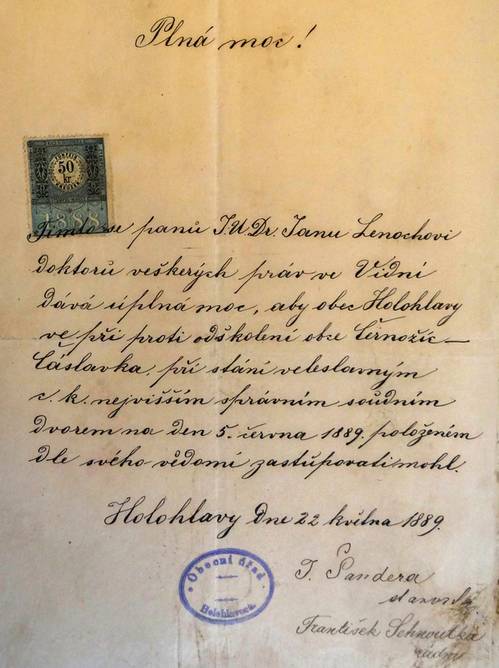 Plná moc!
50
kr.
1888
Tímto se panu J.U.Dr. Janu Lenochovi
doktoru veškerých práv ve Vídni
dává úplná moc, aby obec Holohlavy
ve při proti odškolení obce Černožic –
Čáslavka. při stání veleslavným
c. k. nejvišším správním soudním
dvorem na den 5. června 1889. položeném
dle svého vědomí zastupovati mohl.
Holohlavy Dne 22 května 1889.
Obecní úřad
J. Šandera
starosta
František
radní